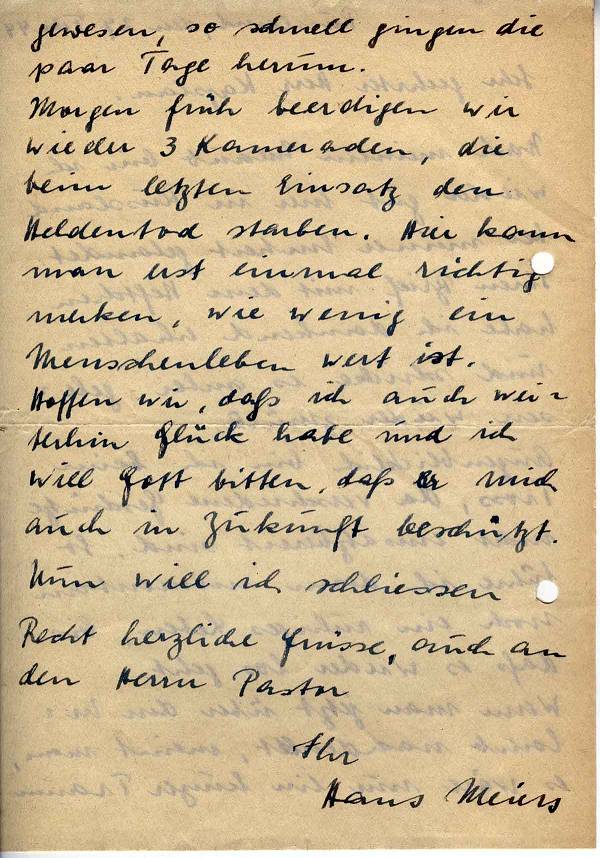 gewesen, so schnell gingen die
paar Tage herum.
Morgen früh beerdigen wir
wieder 3 Kameraden, die
beim letzten Einsatz den
Heldentod starben. Hier kann
man erst einmal richtig
merken, wie wenig ein
Menschenleben wert ist.
Hoffen wir, daß ich auch wei-
terhin Glück habe und ich
will Gott bitten, daß er mich
auch in Zukunft beschützt.
Nun will ich schliessen
Recht herzliche Grüsse, auch an
den Herrn Pastor
Ihr
Hans Meiers